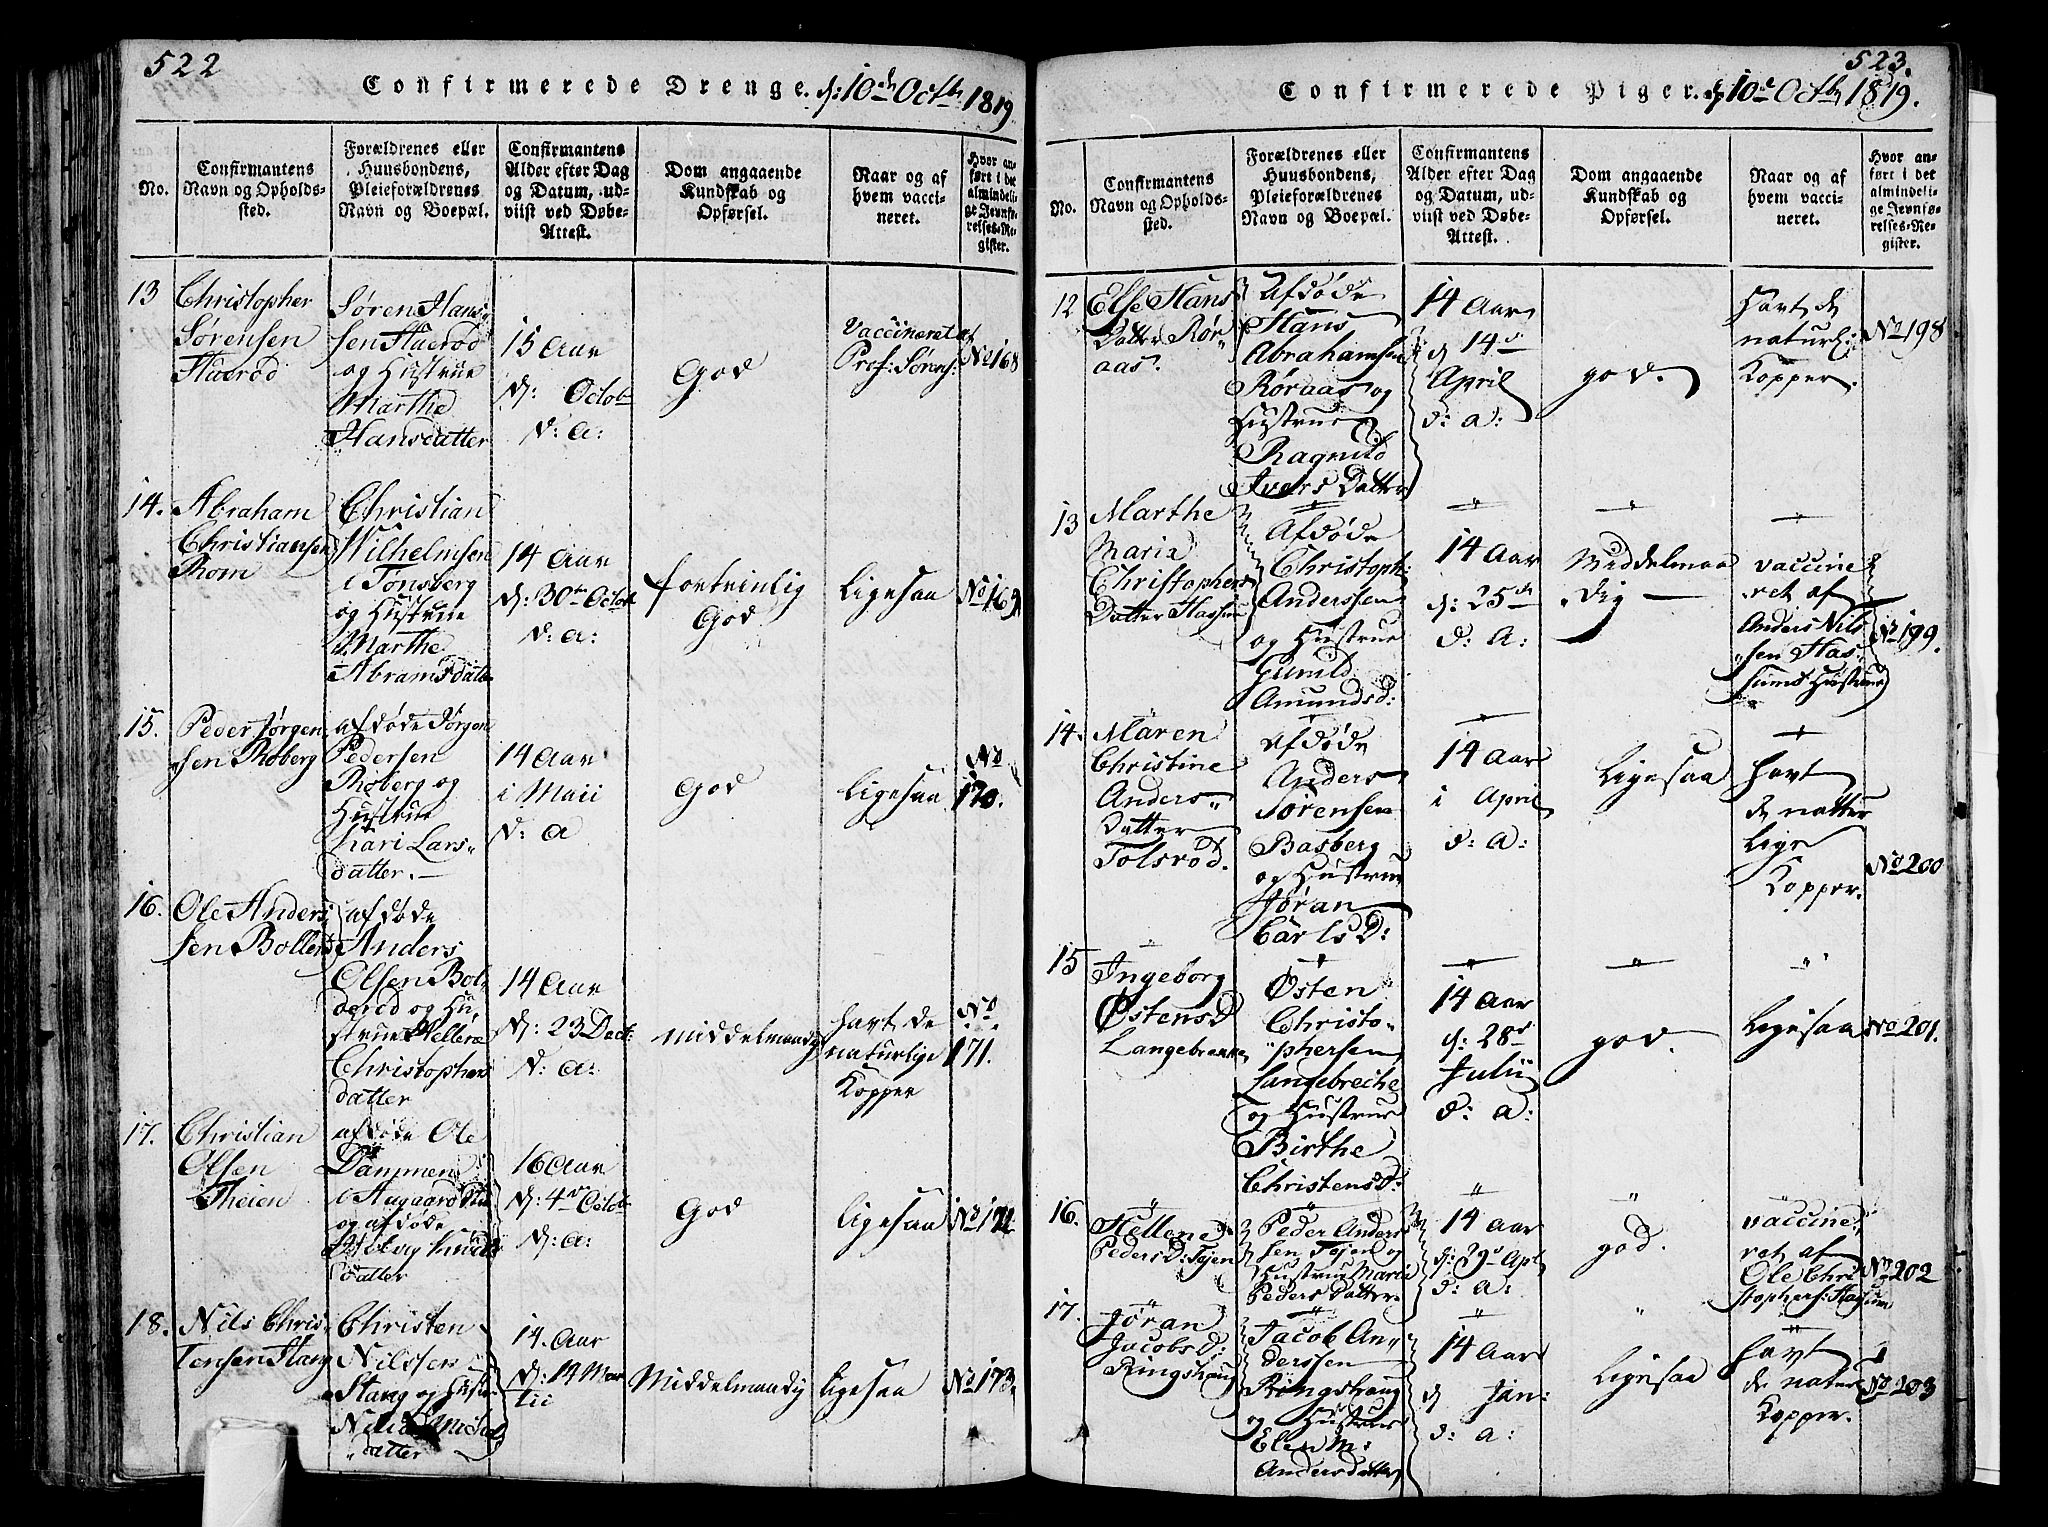 522
Confirmerede Drenge. d: 10de Octb 1819
No.
Confirmantens
Navn og Opholds-
sted.
Forældrenes eller
Huusbondens,
Pleieforældrenes
Navn og Boepæl.
Confirmantens
Alder efter Dag
og Datum, ud-
viist ved Døbe-
Attest.
Dom angaaende
Kundskab og
Opførsel.
Naar og af
hvem vacci-
neret.
Hvor an-
ført i det
almindeli-
ge Jevnfø-
relses-Re-
gister.
13
Christopher
Sørensen
Søren Hans
sen
og Hustrue
Marthe
Hansdatter
15 Aar
d: Octob
d: a:
God
Vaccineret af
Prof: Sørens:
No 168
14.
Abraham
Christiansen
Rom
Christian
Wilhelmsen
i Tønsberg
og Hustrue
Marthe
Abramsdatter
14 Aar
d: 30te Octob
d: a:
fortrinlig
God
Ligesaa
No 169
15.
Peder Jørgen
sen Roberg
afdøde Jørgen
Pedersen
Roberg og
Hustrue
Kari Lars-
datter.
14 Aar
i Maii
d: a
God
Ligesaa
No
170.
16.
Ole Anders
sen
afdøde
Anders
Olsen Bol-
dered og Hu-
strue Hellene
Christophers
datter
14 Aar
d: 23 Dec:
d: a:
middelmaadig
havt de
naturlige
Kopper
No
171.
17.
Christian
Olsen
Theien
afdøde Ole
Dammen
og afdøde
datter
16 Aar
d: 4de Octob
d: a:
God
Ligesaa
No 172
18.
Nils Chris-
tensen Stang
Christen
Nilssen
Stang og Hustr
datter
14 Aar
d: 14 Mar
tii
Middelmaadig
Ligesaa
No 173
523.
Confirmerede Piger. d 10de Octb 1819.
No.
Confirmantens
Navn og Opholds-
sted.
Forældrenes eller
Huusbondens,
Pleieforældrenes
Navn og Boepæl.
Confirmantens
Alder efter Dag
og Datum, ud-
viist ved Døbe-
Attest.
Dom angaaende
Kundskab og
Opførsel.
Naar og af
hvem vacci-
neret.
Hvor an-
ført i det
almindeli-
ge Jevnfø-
relses-Re-
gister.
12
Else Hans
Datter Rør
aas.
Afdøde
Hans
Abrahamsen
Røraas og
Hustrue
Ragnild
Ivers Datter
14 Aar
d 14de
April
d: a:
god.
Havt de
naturl:
Kopper.
No 198
13
Marthe
Maria
Christophers
Datter Hassum
Afdøde
Christoph:
Anderssen
og Hustrue
Gunild
Amundsd:
14 Aar
d: 25de
d: a:
Middelmaa
dig
vaccine
ret af
Anders Nils
sen Has
sums Hustrue
No 199.
14.
Maren
Christine
Anders
Datter
Tolsrød.
Afdøde
Anders
Sørensen
Basberg
og Hustrue
Jøran
Carls D:
14 Aar
i April
d: a:
Ligesaa
havt
de natur
lige
Kopper.
No 200
15
Ingeborg
Østensd
Langebrekke
Østen
Christo-
phersen
Langebreche
og Hustrue
Birthe
Christensd:
14 Aar
d: 28de
Julii
d: a:
god.
Ligesaa
No 201.
16.
Hellene
Peders D: Tejen
Peder Anders
sen Tejen og
Hustrue Marie
Peders Datter
14 Aar
d: 29de Apl
d: a:
god.
vaccine
ret af
Ole Chri
stophers: Hassum
No 202
17.
Jøran
Jacobsd:
Ringshaug
Jacob An-
derssen
Ringshaug
og Hustrue
Elen M:
Andersdatter
14 Aar
d Jan:
d: a:
Ligesaa
havt
de naturl
Kopper.
No 203